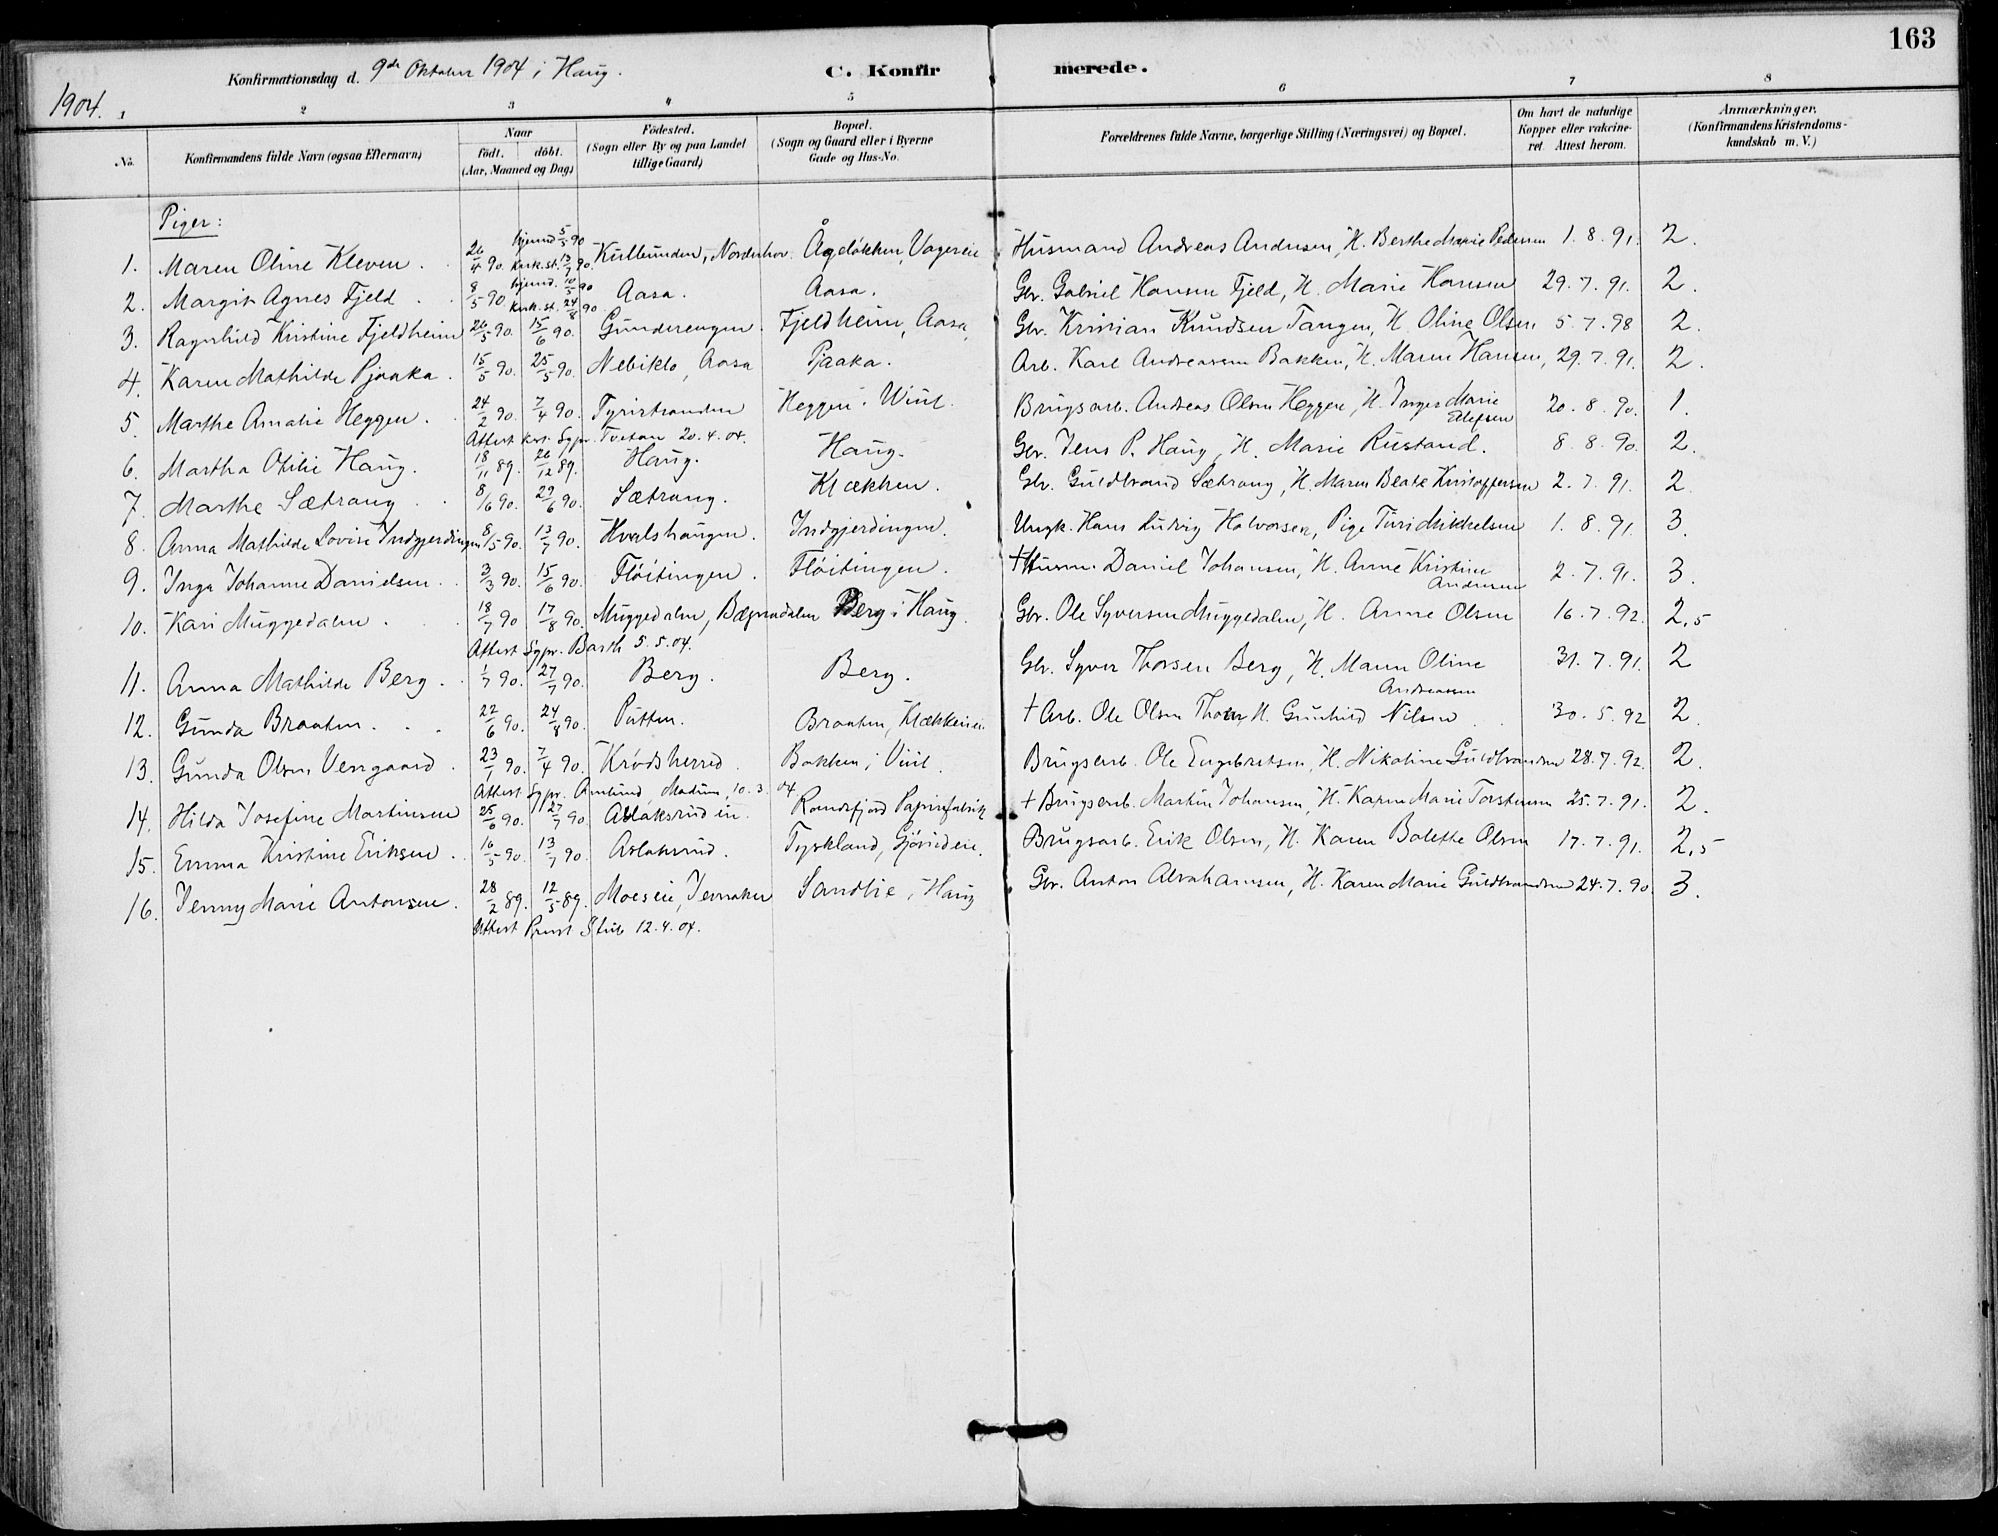 163
Konfirmationsdag d. 9de Oktober 1904 i Haug.
C. Konfirmerede.
1904.
1 2 3 4 5 6 7 8
No.
Konfirmandens fulde Navn (ogsaa Efternavn)
Naar
födt. döbt.
(Aar, Maaned og Dag)
Födested.
(Sogn eller By og paa Landet
tillige Gaard)
Bopæl.
(Sogn og Gaard eller i Byerne
Gade og Hus-No.
Forældrenes fulde Navne, borgerlige Stilling (Næringsvei) og Bopæl.
Om havt de naturlige
Kopper eller vakcine-
ret. Attest herom.
Anmærkninger.
(Konfirmandens Kristendoms-
kundskab m. V.)
Piger:
1. Maren Oline Kleven. 26/4 90. hjemd. 5/5 90 kirk.st. 13/7 90. Norderhov. Ågeløkken, Vagereie Husmand Andreas Andersen, H. Berthe Marie Pedersen 1.8.91. 2.
2. Margit Agnes Fjeld. 8/5 90 hjemd. 10/5 90 kirk.st. 24/8 90 Aasa. Aasa. Gbr. Gabriel Hansen Fjeld, H. Marie Hansen 29.7.91. 2.
3. Ragnhild Kristine Fjeldheim 26/5 90. 15/6 90. Gunderengen. Fjeldheim, Aasa. Gbr. Kristian Knudsen Tangen, H. Oline Olsen 5.7.98 2.
4. Karen Mathilde Pjaaka. 15/5 90. 25/5 90. Aasa Pjaaka. Arb. Karl Andreassen Bakken, H. Maren Hansen, 29.7.91. 2.
5. Marthe Amalie Heggen. 24/2 90. 7/4 90. Tyristranden Heggen i Viul. Brugsarb. Andreas Olsen Heggen, H. Inger Marie Ellefsen 20.8.90. 1.
Attest Sgpr. Tvetan 20.4.04.
6. Martha Otilie Haug. 18/11 89. 26/12 89. Haug. Haug. Gbr. Jens P. Haug, H. Marie Rustand. 8.8.90. 2.
7. Marthe Sætrang 8/6 90. 29/6 90. Sætrang. Klækken. Gbr. Guldbrand Sætrang, H. Maren Beate Kristoffersen 2.7.91. 2
8. Anna Mathilde Lovise Indgjerdingen 8/5 90. 13/7 90. Hvalshaugen. Indgjerdingen. Ungk. Hans Ludvig Halvorsen, Pige Turi Mikkelsen 1.8.91. 3.
9. Inga Johanne Danielsen. 3/3 90. 15/6 90. Fløitingen. Fløitingen. † Husm. Daniel Johansen, H. Anne Kristine Andersen 2.7.91. 3.
10. Kari Muggedalen. 18/7 90 17/8 90. Muggedalen, Bægnadalen Berg i Haug. Gbr. Ole Syversen Muggedalen, H. Anne Olsen 16.7.92. 2,5
Attest Sgpr. Barth 5.5.04.
11. Anna Mathilde Berg. 1/7 90. 27/7 90. Berg. Berg. Gbr. Syver Thorsen Berg, H. Maren Oline Andreassen 31.7.91. 2
12. Gunda Braaten. 22/6 90. 24/8 90. Putten. Braaten, Klækkeneie † Arb. Ole Olsen H. Gunhild Nilsen 30.5.92 2.
13. Gunda Olsen Vengaard. 23/1 90. 7/4 90. Krødsherred. Bakken i Viul. Brugsarb. Ole Engebretsen, H. Nikoline Guldbrandsen 28.7.92. 2.
Attest Sgpr. Modum, 10.3.04
14. Hilda Josefine Martinsen 25/6 90. 27/7 90. Aslaksrud ie. Randsfjord Papirfabrik † Brugsarb. Martin Johansen, H. Karen Marie Torstensen 25.7.91. 2.
15. Emma Kristine Eriksen. 16/5 90. 13/7 90. Aslaksrud. Tyskland, Gjøvideie. Brugsarb. Erik Olsen, H. Karen Bolette Olsen 17.7.91. 2,5
16. Jenny Marie Antonsen. 28/2 89. 12/5 89. Moeseie, Jevnaker Sandlie i Haug Gbr. Anton Abrahamsen, H. Karen Marie Guldbrandsen 24.7.90. 3.
Attest Provst Stub 12.4.04.